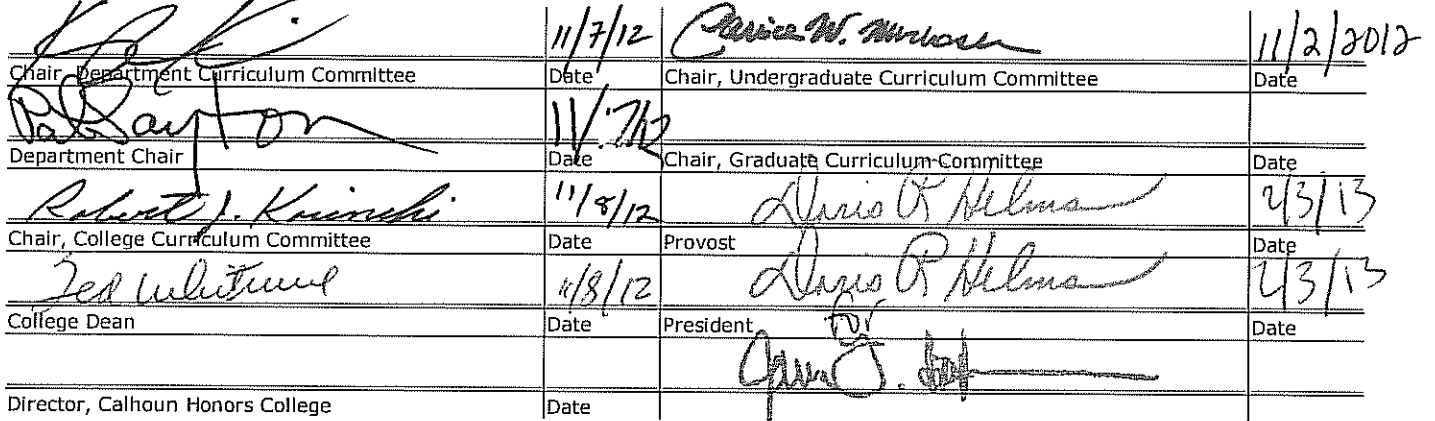 11/7/12 11/2/2012
Chair, Department Curriculum Committee Date Chair, Undergraduate Curriculum Committee Date
11/7/12
Department Chair Date Chair, Graduate Curriculum Committee Date
Robert J. 11/8/12 Helms 2/3/13
Chair, College Curriculum Committee Date Provost Date
Ted 11/8/12 Helms 2/3/13
College Dean Date President for Date
Director, Calhoun Honors College Date